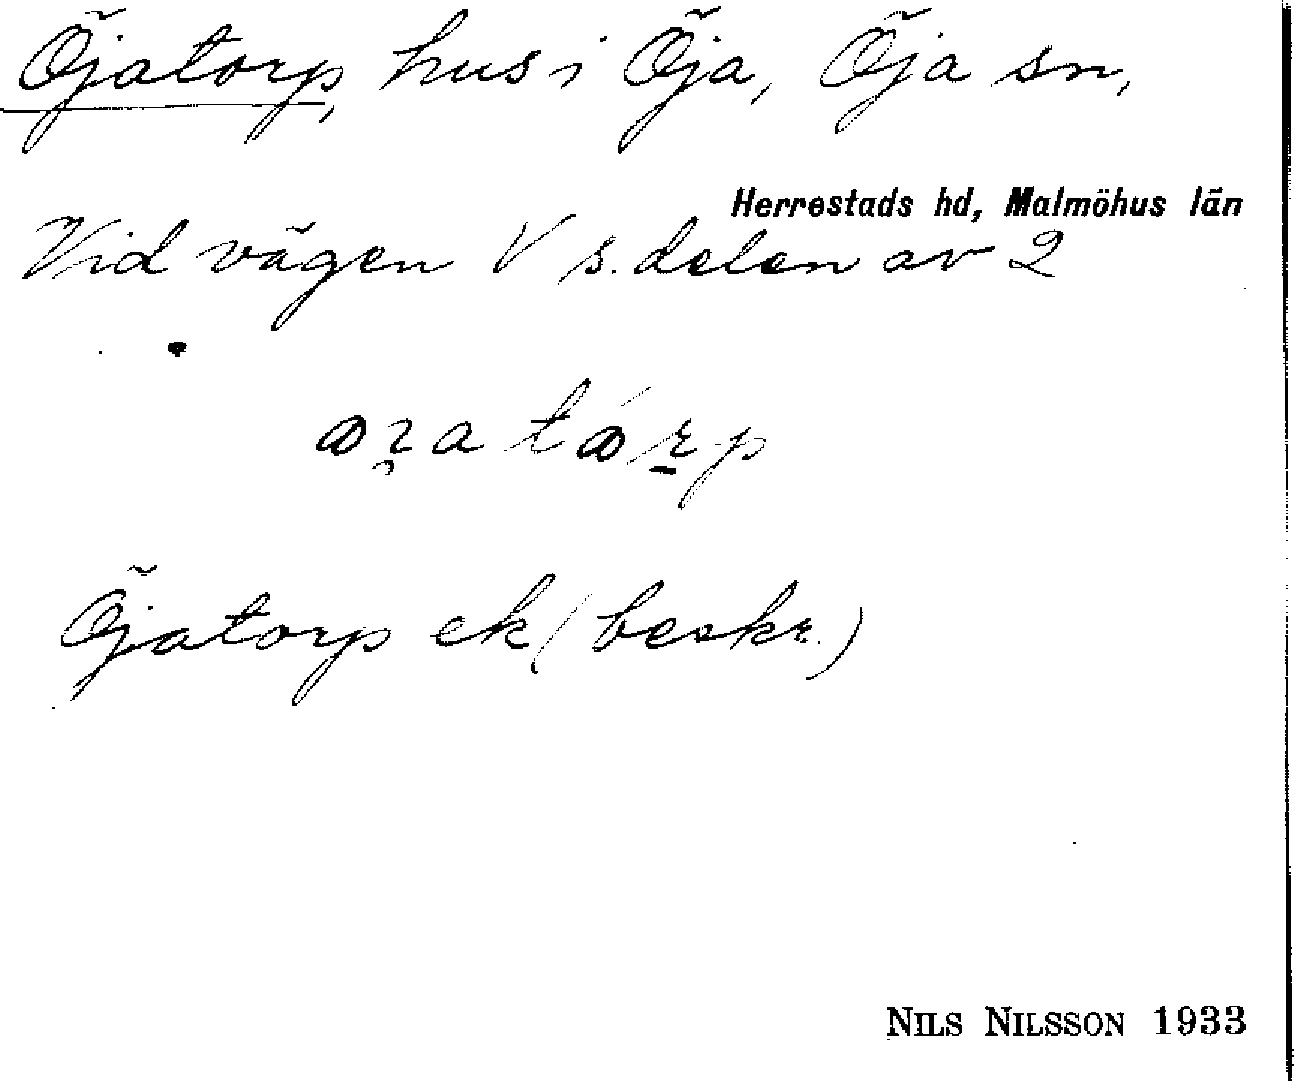 Öjatorp, hus i Öja, Öja sn,
Herrestads hd, Malmöhus län
Vid vägen V s. delen av 2
Öjatorp ek (beskr.)
NILS NILSSON 1933